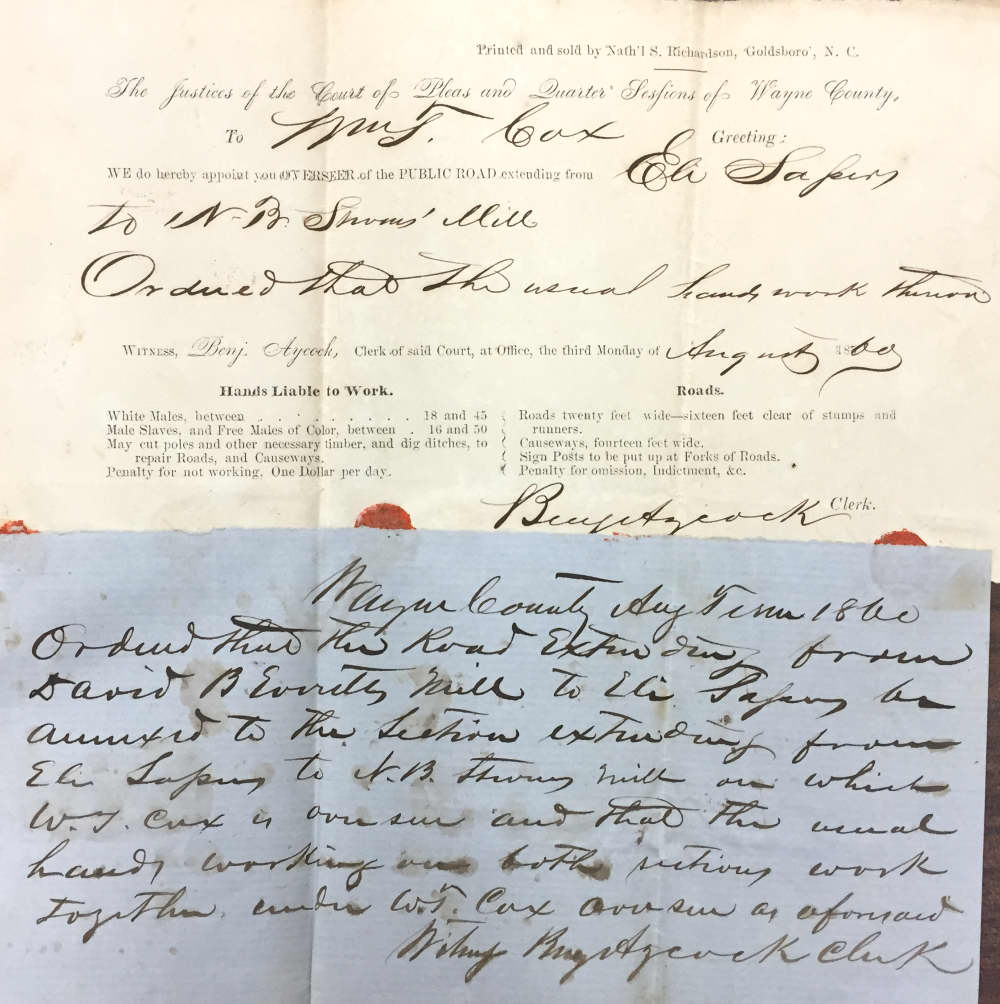 Printed and sold by Nath'l S. Richardson, Goldsboro', N. C.
The Justices of the Court of Pleas and Quarter Sessions of Wayne County,
To Wm T. Cox Greeting:
WE do hereby appoint you OVERSEER of the PUBLIC ROAD extending from Eli Sasser's
to N. B. Stevens' Mill
Ordered that the usual hands work thereon
WITNESS, Benj. Aycock, Clerk of said Court, at Office, the third Monday of August 1860
Hands Liable to Work.
White Males, between . . . . . . . . . . 18 and 45
Male Slaves, and Free Males of Color, between . 16 and 50
May cut poles and other necessary timber, and dig ditches, to
repair Roads, and Causeways.
Penalty for not working, One Dollar per day.
Roads.
Roads twenty feet wide—sixteen feet clear of stumps and
runners.
Causeways, fourteen feet wide.
Sign Posts to be put up at Forks of Roads.
Penalty for omission, Indictment, &c.
Benj Aycock Clerk.
Wayne County Aug Term 1860
Ordered that the Road Extending from
David B Everetts Mill to Eli Sassers be
annexed to the Section extending from
Eli Sassers to N. B. Stevens Mill on which
W. T. Cox is overseer and that the usual
hands working on both sections work
together under W. T. Cox overseer as aforesaid
Witness Benj Aycock Clerk